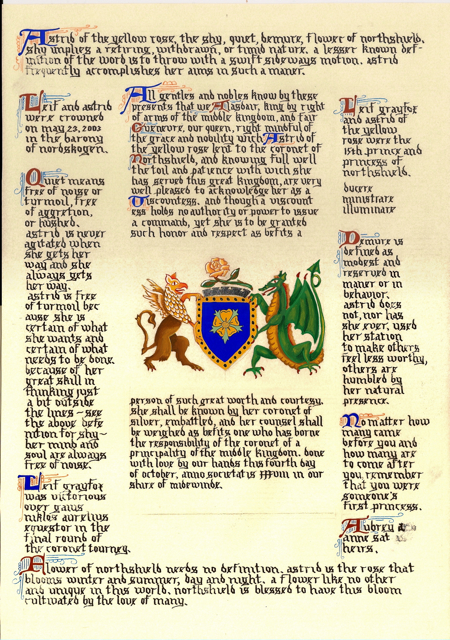 Astrid of the yellow rose, the shy, quiet, demure, flower of northshield.
shy implies a retiring, withdrawn, or timid nature. a lesser known def-
inition of the word is to throw with a swift sideways motion. astrid
frequently accomplishes her aims in such a maner.
Leif and astrid
were crowned
on may 23, 2003
in the barony
of nordskogen.
Quiet means
free of noise or
turmoil, free
of aggretion,
or hushed.
astrid is never
agitated when
she gets her
way and she
always gets
her way.
astrid is free
of turmoil bec
awse she is
certain of what
she wants and
certain of what
needs to be done.
because of her
great skill in
thinking just
a bit outside
the lines ~ see
the above defi
nition for shy~
her mind and
soul are always
free of noise.
Leif grayfox
was victorious
over gaius
niklos aurelius
equestor in the
final round of
the coronet tourney.
All gentles and nobles know by these
presents that we Alasdair, king by right
of arms of the middle kingdom, and fair
Guenevre, our queen, right mindful of
the grace and nobility wich Astrid of
the yellow rose lent to the coronet of
Northshield, and knowing full well
the toil and patience with wich she
has served this great kingdom, are very
well pleased to acknowledge her as a
Viscountess, and though a viscount
ess holds no authority or power to issue
a command, yet she is to be granted
such honor and respect as befits a
person of such great worth and courtesy.
she shall be known by her coronet of
silver, embattled, and her counsel shall
be weighed as befits one who has borne
the responsibility of the coronet of a
principality of the middle kingdom. done
with love by our hands this fourth day
of october, anno societatis in our
shire of midewinde.
Leif grayfox
and astrid
of the yellow
rose were the
15th prince and
princess of
northshield.
ducere
ministrare
illuminare
Demure is
defined as
modest and
reserved in
maner or in
behavior.
astrid does
not, nor has
she ever, used
her station
to make others
feel less worthy,
others are
humbled by
her natural
presence.
No matter how
many came
before you and
how many are
to come after
you remember
that you were
someone's
first princess.
Aubrey and
anne sat as
heirs.
Flower of northshield needs no definition. astrid is the rose that
blooms winter and summer, day and night. a flower like no other
and unique in this world. northshield is blessed to have this bloom
cultivated by the love of many.